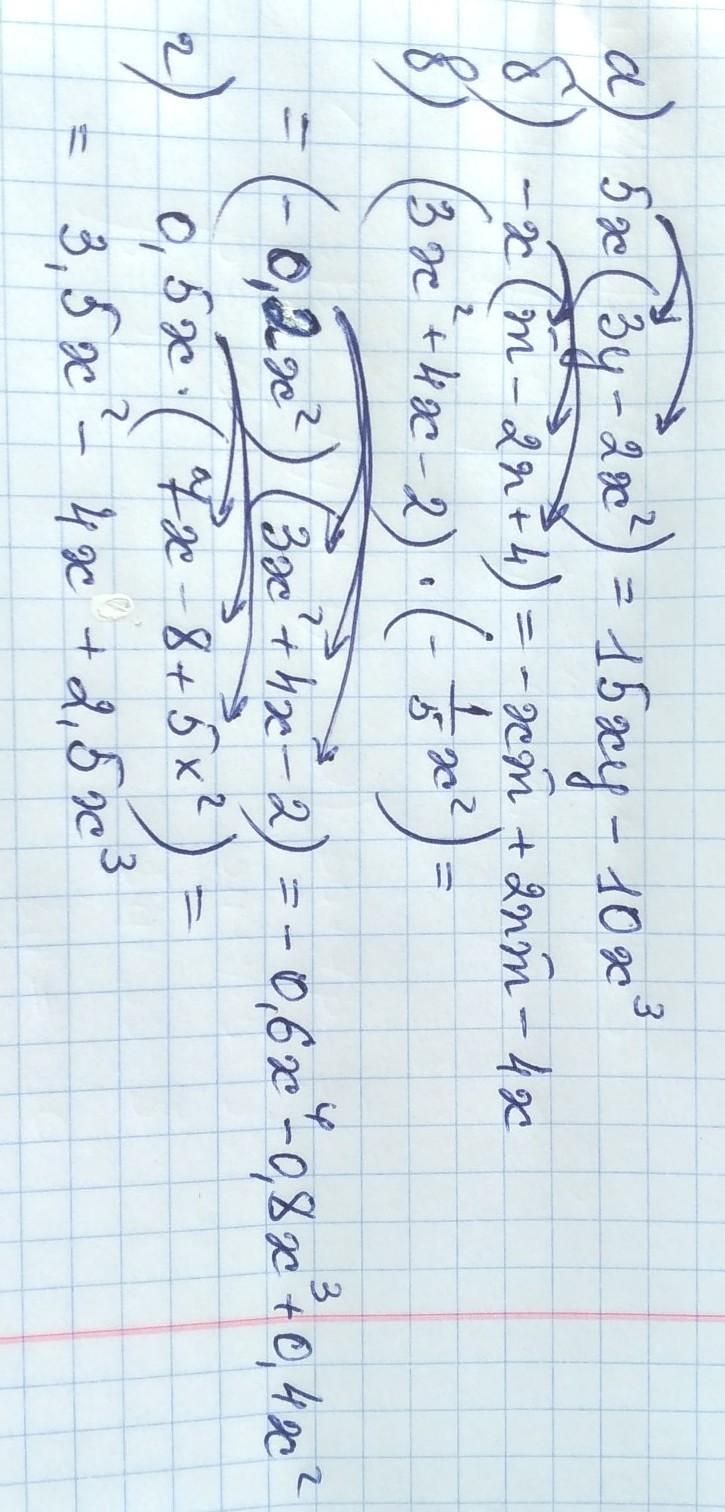 а) 5x(3y - 2x²) = 15xy - 10x³
б) -x(m̅ - 2n + 4) = -xm̅ + 2nm̅ - 4x
в) (3x² + 4x - 2) · (- 1/5 x²) =
= (-0,2x²)(3x² + 4x - 2) = -0,6x⁴ - 0,8x³ + 0,4x²
г) 0,5x · (7x - 8 + 5x²) =
= 3,5x² - 4x + 2,5x³